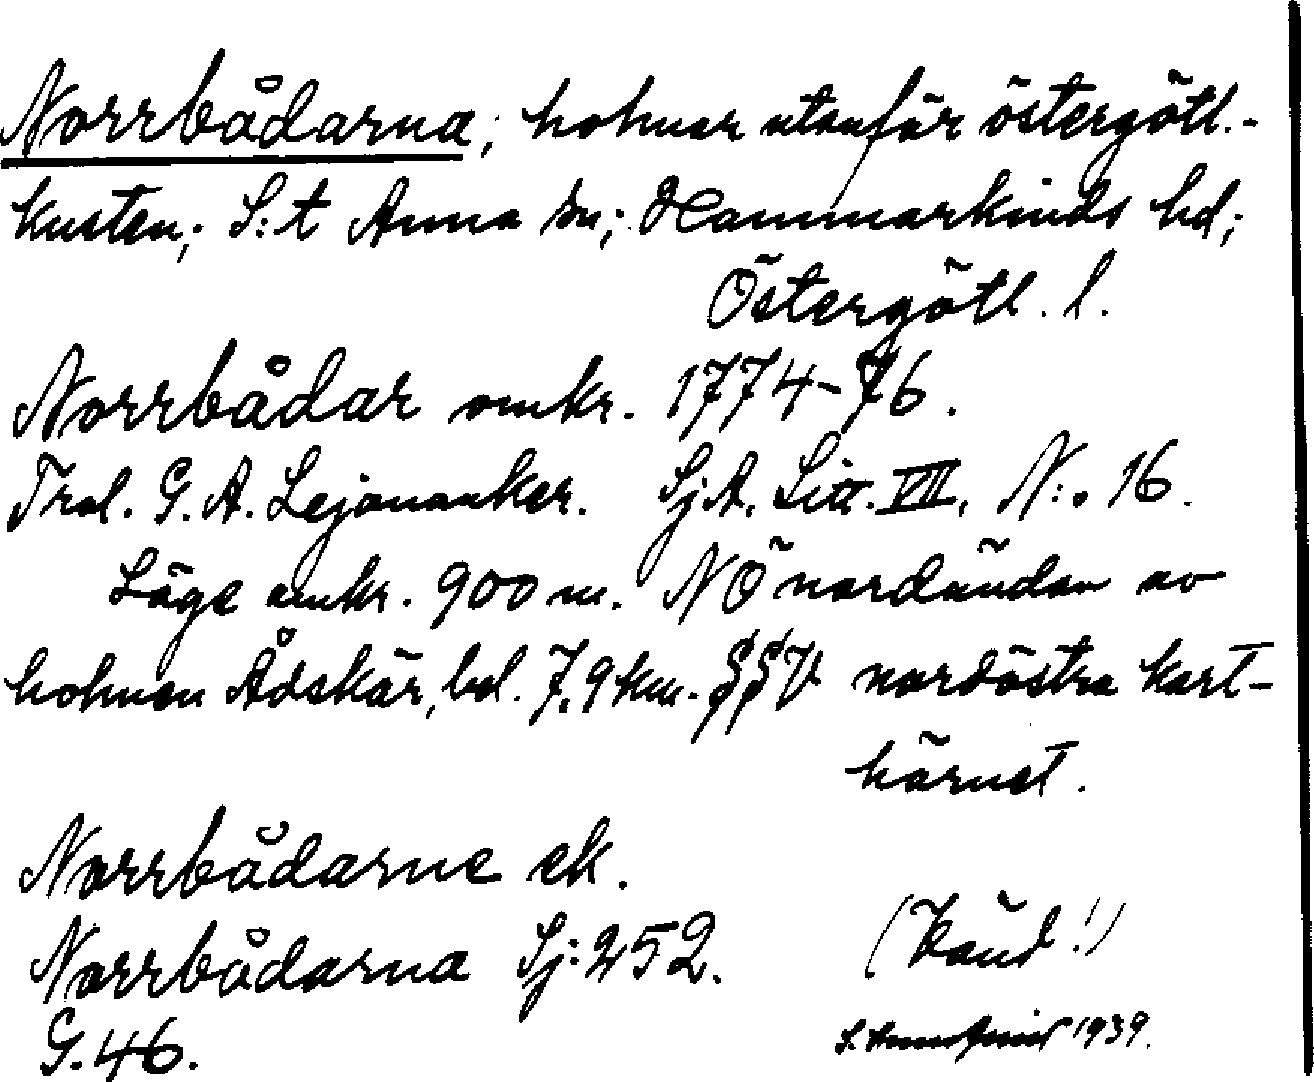 Norrbådarna; holmar utanför östergötl.-
kusten; S:t Anna sn; Hammarkinds hd;
Östergötl. l.
Norrbådar omkr. 1774-76.
Trol. G. A. Lejonanker. SjA. Litt. VII. N:o 16.
Läge omkr. 900 m. NÖ nordändan av
holmen Ådskär, bel. 7,9 km. SSV nordöstra kart-
hörnet.
Norrbådarne ek.
Norrbådarna Sj: 252. (Känd!)
G. 46. 1939.